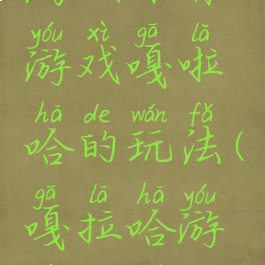 yóu xì gā lā
游戏嘎啦
hā de wán fǎ
哈的玩法(
gā lā hā yóu
嘎拉哈游